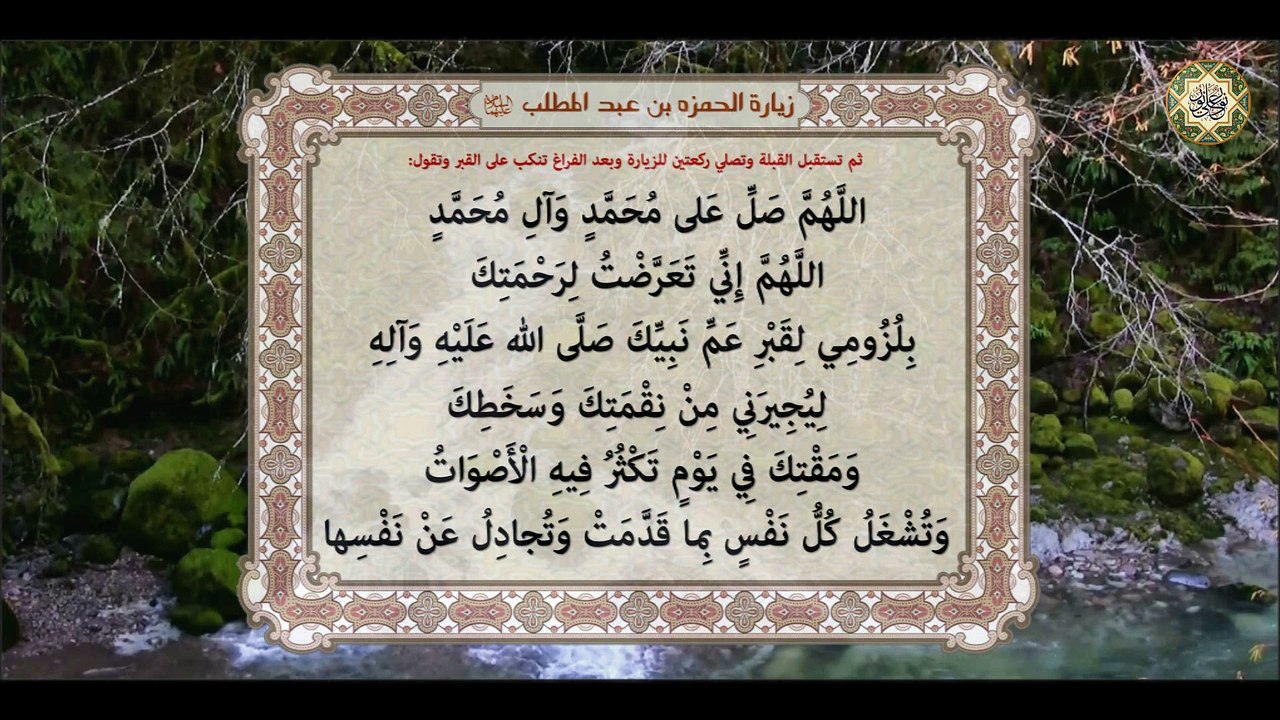 زيارة الحمزه بن عبد المطلب
ثم تستقبل القبلة وتصلي ركعتين للزيارة وبعد الفراغ تنكب على القبر وتقول:
اللَّهُمَّ صَلِّ عَلى مُحَمَّدٍ وَآلِ مُحَمَّدٍ
اللَّهُمَّ إِنِّي تَعَرَّضْتُ لِرَحْمَتِكَ
بِلُزُومِي لِقَبْرِ عَمِّ نَبِيِّكَ صَلَّى الله عَلَيْهِ وَآلِهِ
لِيُجِيرَنِي مِنْ نِقْمَتِكَ وَسَخَطِكَ
وَمَقْتِكَ فِي يَوْمٍ تَكْثُرُ فِيهِ الْأَصْوَاتُ
وَتُشْغَلُ كُلُّ نَفْسٍ بِما قَدَّمَتْ وَتُجادِلُ عَنْ نَفْسِها